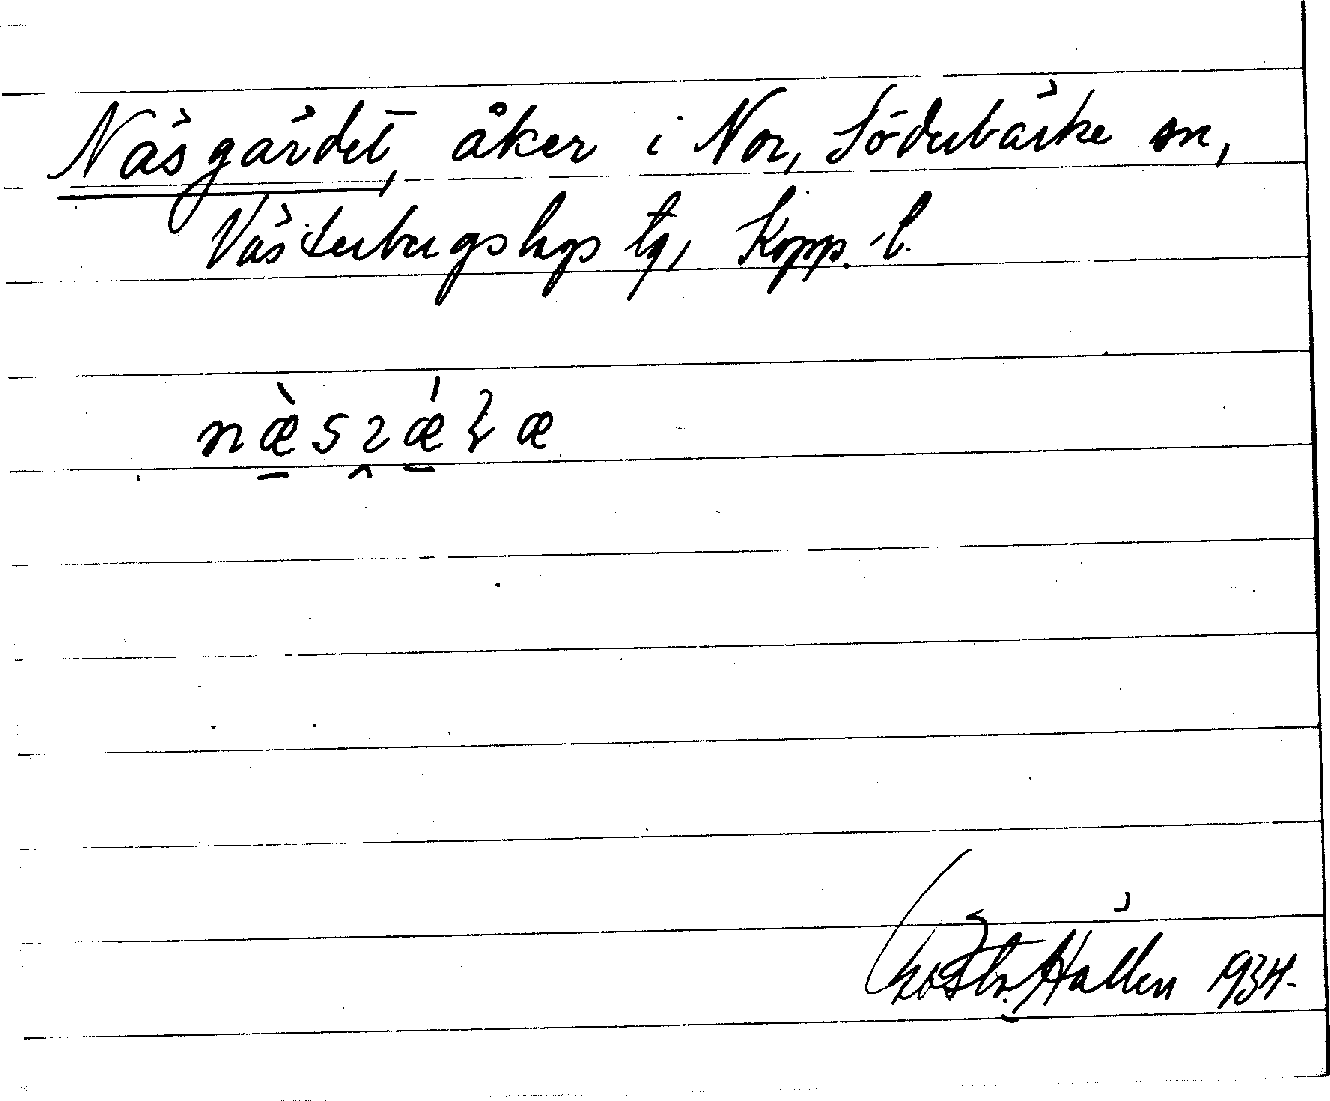 Näsgärdet, åker i Nor, Söderbärke sn,
Västerbergslags tg, Kopp. l.
Hällen 1934.